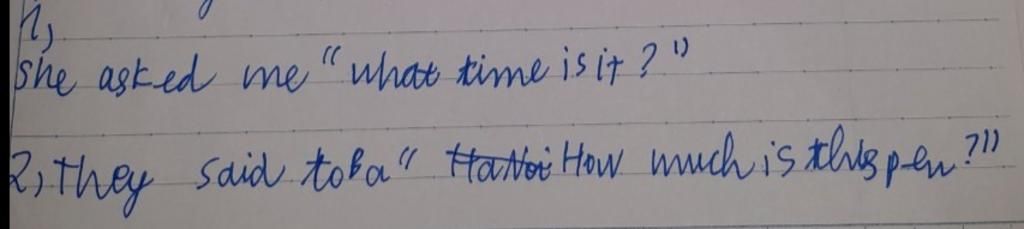 1,
She asked me “what time is it?”
2, They said to Ba “ How much is this pen?”